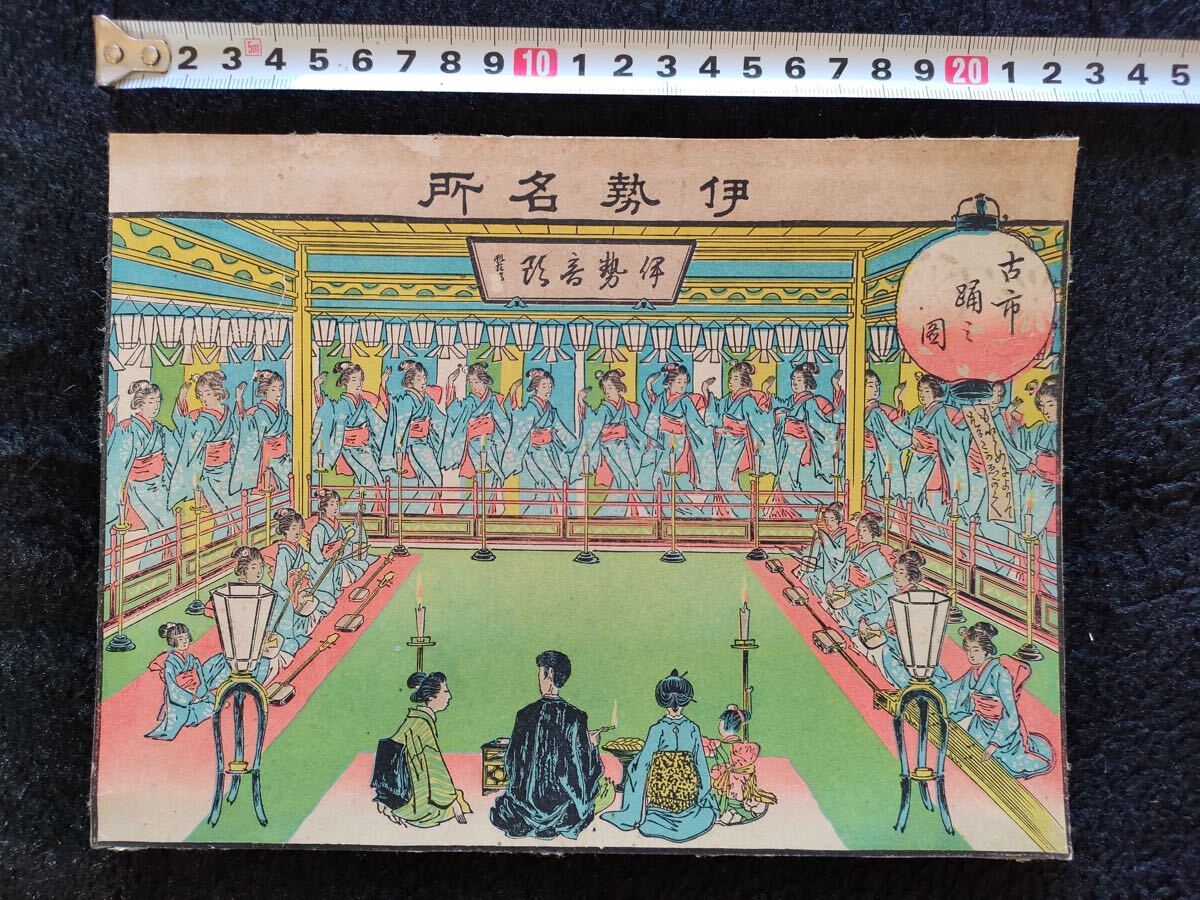 2 3 5m 4 5 6 7 8 9 10 1 2 3 4 5 6 7 8 9 20 1 2 3 4 5
伊勢名所
伊勢音頭
古市
踊之
圖